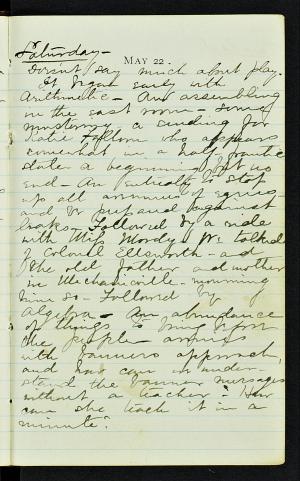 Saturday-
MAY 22.
Doesn't say much about play.
It began early with
Arithmetic - An assembling
in the east room - some
mustering a sending for
Katie Folsom who appears
somewhat in a half frantic
state a beginning but no
end - An entreaty to stop
up all avenues of
and be prepared against
leaks. Followed by a ride
with Miss Moody. We talked
of Colonel Ellsworth - and
the old father and mother
in Mechanicville - mourning
him so - Followed by
Algebra - An abundance
of things to bring upon
the people - armies
with banners approach,
and how can under-
stand the banner messages
without a teacher? How
can she teach it in a
minute?